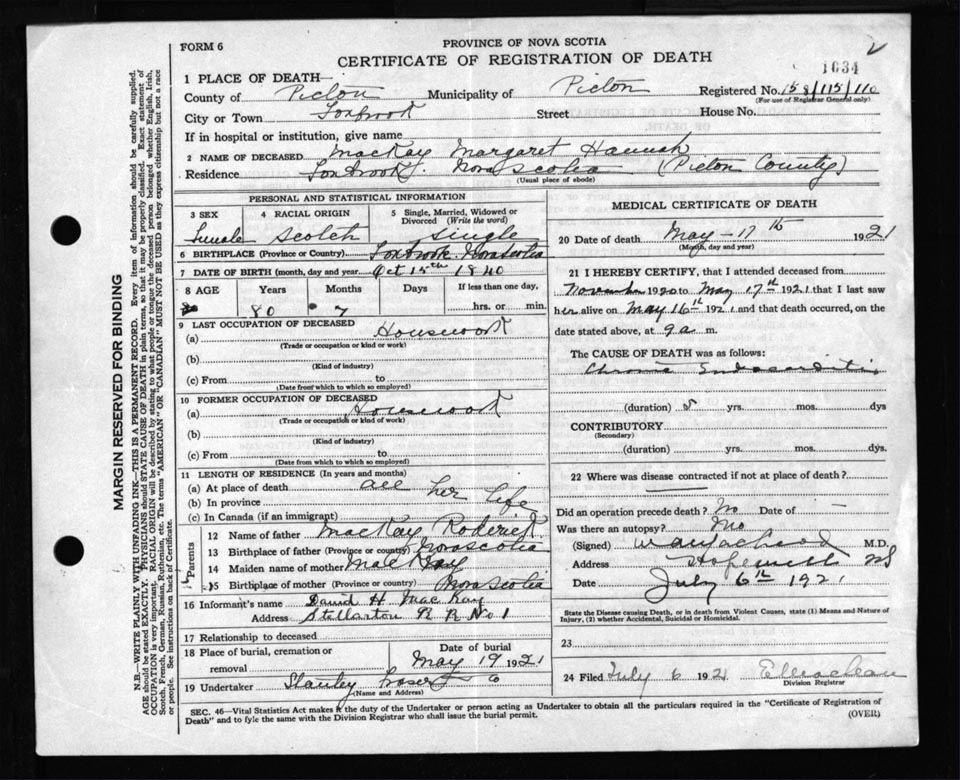 FORM 6
PROVINCE OF NOVA SCOTIA
CERTIFICATE OF REGISTRATION OF DEATH
1634
1 PLACE OF DEATH—
County of Pictou Municipality of Pictou Registered No. 158/115/110
(For use of Registrar General only)
City or Town Foxbrook Street House No.
If in hospital or institution, give name
2 NAME OF DECEASED MacKay Margaret Hannah
Residence Foxbrook, Nova Scotia (Pictou County)
(Usual place of abode)
PERSONAL AND STATISTICAL INFORMATION
3 SEX Female
4 RACIAL ORIGIN Scotch
5 Single, Married, Widowed or Divorced (Write the word) Single
6 BIRTHPLACE (Province or Country) Foxbrook Nova Scotia
7 DATE OF BIRTH (month, day and year) Oct 15th 1840
8 AGE Years Months Days If less than one day,
80 7 hrs. or min.
9 LAST OCCUPATION OF DECEASED
(a) Housework
(Trade or occupation or kind or work)
(b)
(Kind of industry)
(c) From to
(Date from which to which so employed)
10 FORMER OCCUPATION OF DECEASED
(a) Housework
(Trade or occupation or kind of work)
(b)
(Kind of industry)
(c) From to
(Date from which to which so employed)
11 LENGTH OF RESIDENCE (In years and months)
(a) At place of death all her life
(b) In province
(c) In Canada (if an immigrant)
Parents
12 Name of father MacKay Roderick
13 Birthplace of father (Province or country) Nova Scotia
14 Maiden name of mother
15 Birthplace of mother (Province or country) Nova Scotia
16 Informant's name David H. MacKay
Address Stellarton R R No 1
17 Relationship to deceased
18 Place of burial, cremation or removal
Date of burial
May 19 1921
19 Undertaker Stanley Fraser
(Name and Address)
MEDICAL CERTIFICATE OF DEATH
20 Date of death May - 17th 1921
(Month, day and year)
21 I HEREBY CERTIFY, that I attended deceased from
November 1920 to May 17th 1921 that I last saw
her alive on May 16th 1921 and that death occurred, on the
date stated above, at 9 a m.
The CAUSE OF DEATH was as follows:
Chronic Endocarditis
(duration) yrs. mos. dys
CONTRIBUTORY
(Secondary)
(duration) yrs. mos. dys.
22 Where was disease contracted if not at place of death?
Did an operation precede death? No Date of —
Was there an autopsy? No
(Signed) M.D.
Address Hopewell NS
Date July 6th 1921
State the Disease causing Death, or in death from Violent Causes, state (1) Means and Nature of Injury, (2) whether Accidental, Suicidal or Homicidal.
23
24 Filed July 6 1921 E Maclean
Division Registrar
SEC. 46—Vital Statistics Act makes it the duty of the Undertaker or person acting as Undertaker to obtain all the particulars required in the "Certificate of Registration of
Death" and to file the same with the Division Registrar who shall issue the burial permit.
(OVER)
MARGIN RESERVED FOR BINDING
N.B.—WRITE PLAINLY WITH UNFADING INK—THIS IS A PERMANENT RECORD. Every item of information should be carefully supplied.
AGE should be stated EXACTLY. PHYSICIANS should STATE CAUSE OF DEATH in plain terms, so that it may be properly classified. Exact statement of
OCCUPATION is very important. RACIAL ORIGIN will be described by stating to what people or tongue the deceased person belonged whether English, Irish,
Scotch, French, German, Russian, Ruthenian, etc. The terms "AMERICAN" OR "CANADIAN" MUST NOT BE USED as they express citizenship but not a race
or people. See instructions on back of Certificate.